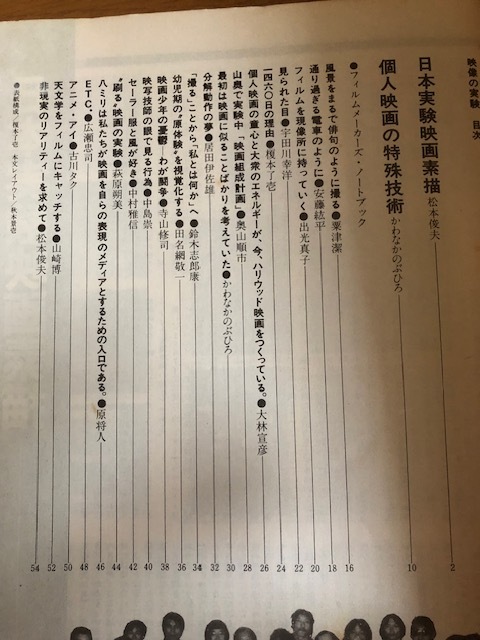 映像の実験 目次
日本実験映画素描 松本俊夫 2
個人映画の特殊技術 かわなかのぶひろ 10
●フィルムメーカーズ・ノートブック
風景をまるで俳句のように撮る●粟津潔 16
通り過ぎる電車のように●安藤紘平 18
フィルムを現像所に持っていく●出光真子 20
見られた目●宇田川幸洋 22
一四六〇日の理由●榎本了壱 24
個人映画の童心と大衆のエネルギーが、今、ハリウッド映画をつくっている。●大林宣彦 26
山奥で実験中「映画組成計画」●奥山順市 28
最初は映画に似ることばかりを考えていた●かわなかのぶひろ 30
分解動作の夢●居田伊佐雄 32
「撮る」ことから「私とは何か」へ●鈴木志郎康 34
幼児期の“原体験”を視覚化する●田名網敬一 36
映画少年の憂鬱 わが闘争●寺山修司 38
映写技師の眼で見る行為●中島崇 40
セーラー服と風が好き●中村雅信 42
“刷る”映画の実験●萩原朔美 44
八ミリは私たちが映画を自らの表現のメディアとするための入口である。●原将人 46
ETC.●広瀬忠司 48
アニメ・アイ●古川タク 50
天文学をフィルムにキャッチする●山崎博 52
非現実のリアリティーを求めて●松本俊夫 54
●表紙構成/榎本了壱 本文レイアウト/